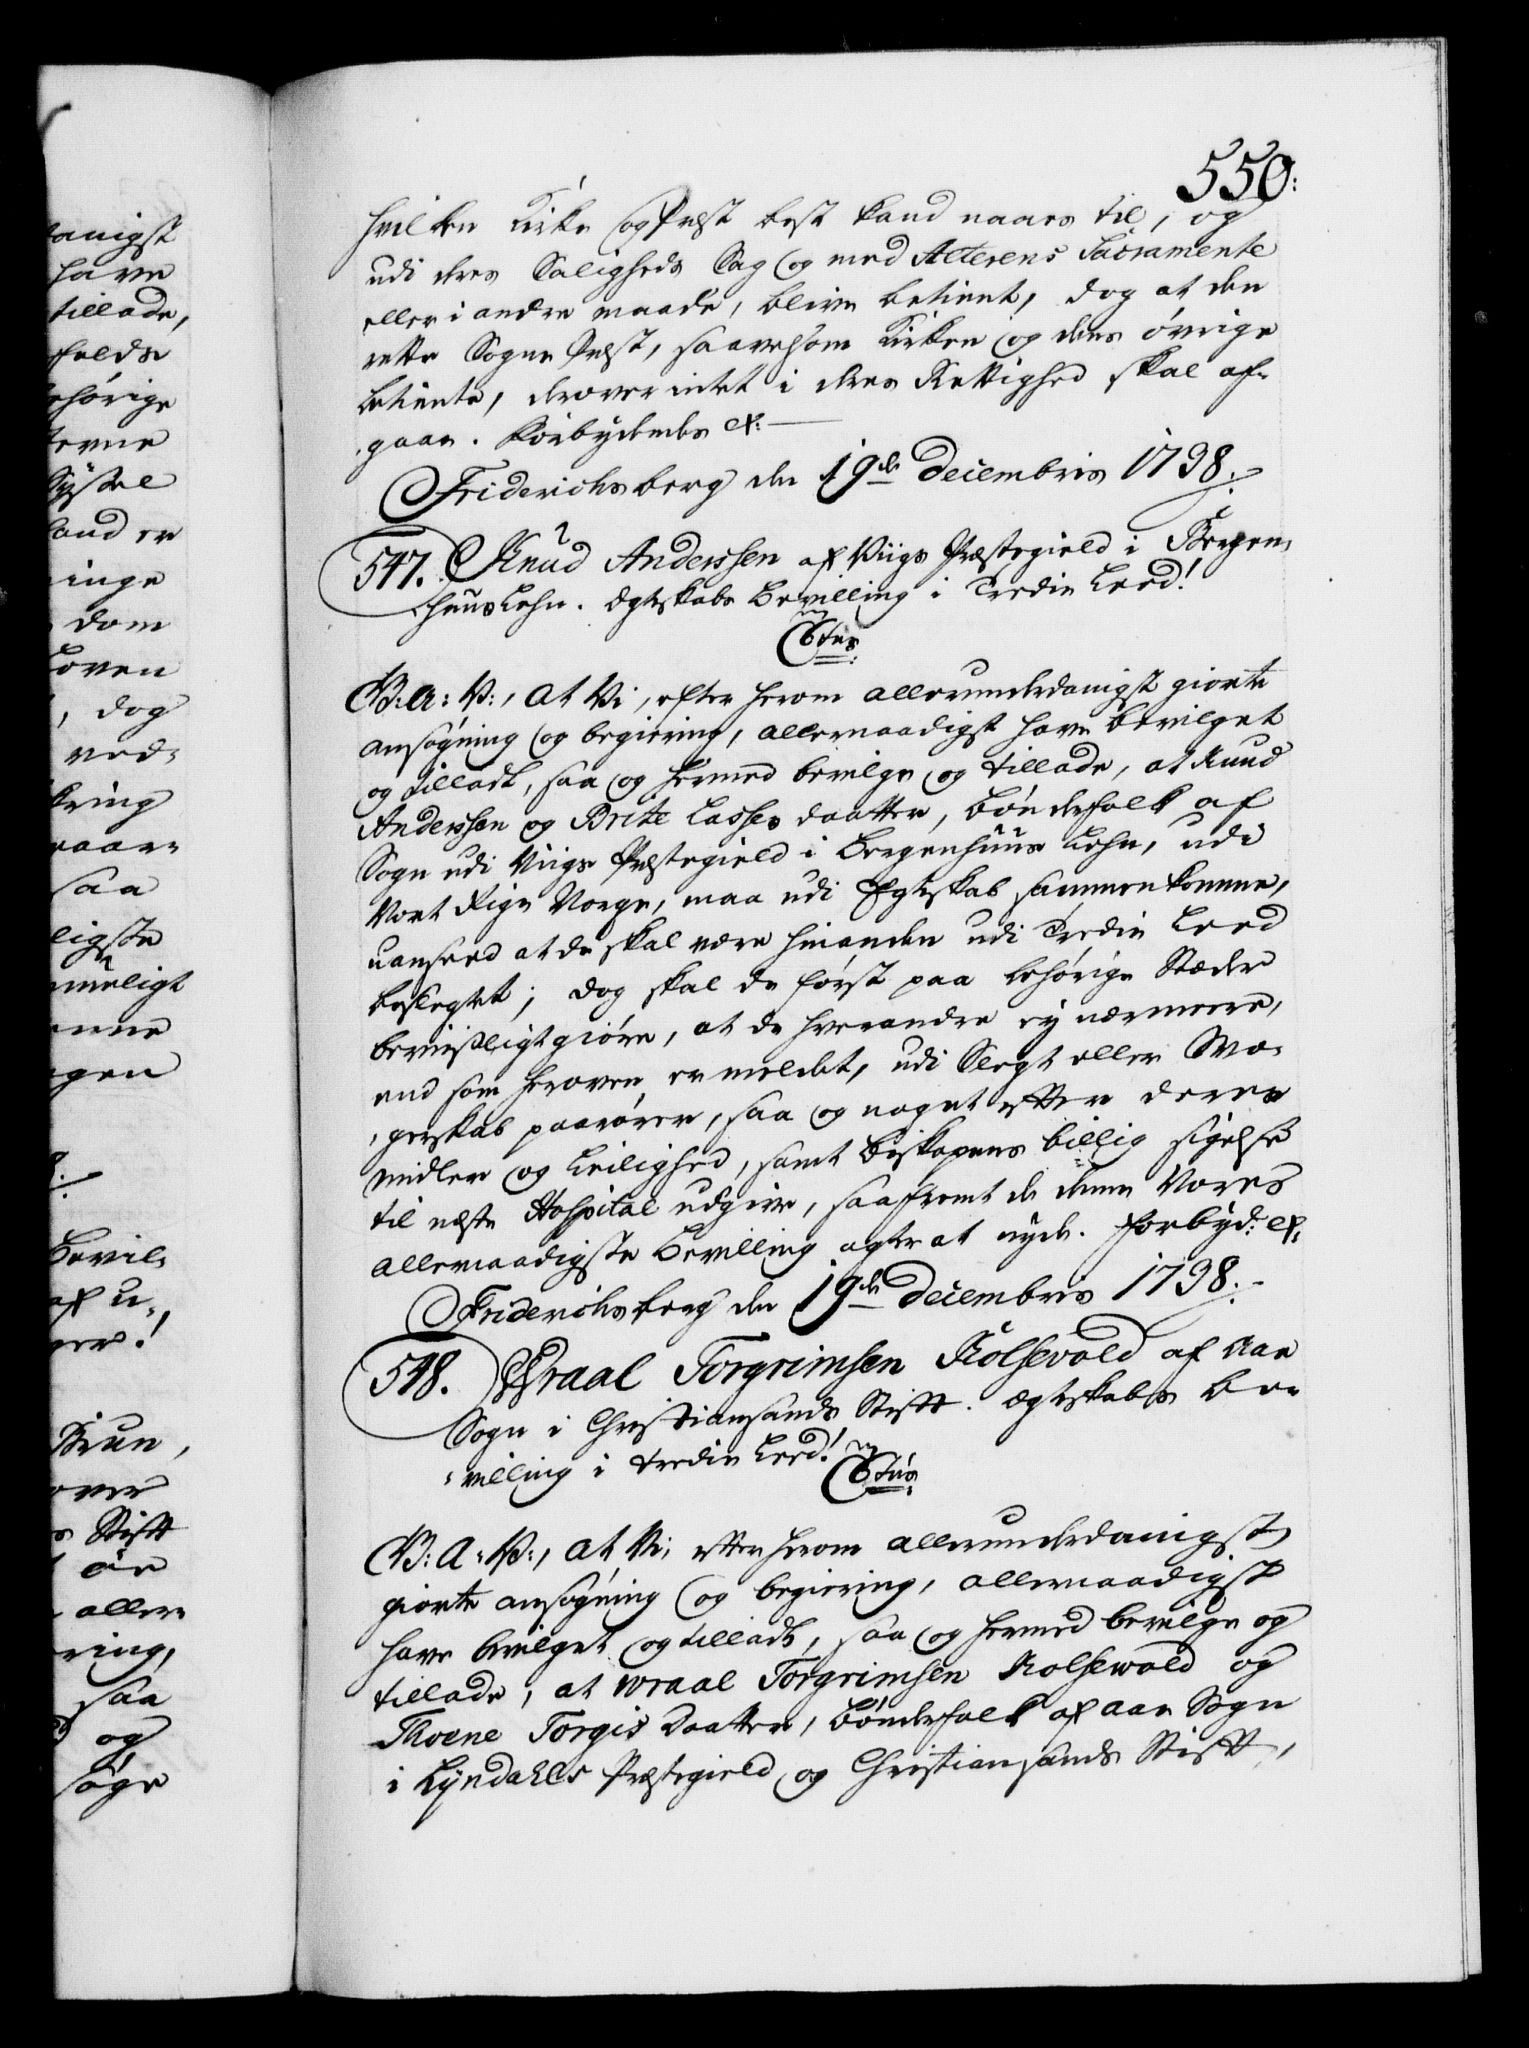 550:
hvilken Kirke og Præst best kand naaes til, og
udi dres Saligheds Sag og med Alterens Sacramente
eller i andre maade, blive betient, dog at den
rette Sogne Præst, saavelsom Kirken og dens øvrige
betiente, derover intet i deres Rettighed skal af-
gaae. Forbydendes &:
Friderichsberg den 19de Decembris 1738.
547. Knud Anderssen af Viigs Præstegield i Bergen,
huus Lehn. Ægteskabs Bevilling i Tredie Leed!
C6tus
G: A: V:, at Vi, efter herom allerunderdanigst giorte
ansøgning og begiering, allernaadigst have bevilget
og tilladt, saa og hermed bevilge og tillade, at Knud
Anderssen og Brite Lasses daatter, bønderfolk af
Sogn udi Viigs Præstegield i Bergenhuus Lehn, udi
Vort Rige Norge, maa udi Egteskab sammenkomme,
uanseed at de skal være hinanden udi Tredie Leed
beslegtet; dog skal de først paa behørige Stæder
beviisligtgiøre, at de hverandre ey nærmere,
end som heroven er meldet, udi Slegt eller Swo-
gerskab paarører, saa og noget efter deres
midler og Leilighed, samt Biskopens billig sigelse
til næste Hospital udgive, saafremt de denne Vores
allernaadigste Bevilling agter at nyde. Forbyd: &:
Friderichsberg den 19de Decembris 1738.
548. Wraal Torgrimsen Rolsevold af Aae
Sogn i Christiansands Stift. Ægteskabs Be-
villing i tredie Leed!
C6tus
G: A: V:, at Vi, efter herom allerunderdanigst
giorte ansøgning og begiering, allernaadigst
have bevilget og tilladt, saa og hermed bevilge og
tillade, at Wraal Torgrimsen Rolsewold og
Thorne Torgis Daatter, bønderfolk af Aae Sogn
i Lyndahls Præstegield og Christiansands Stift,